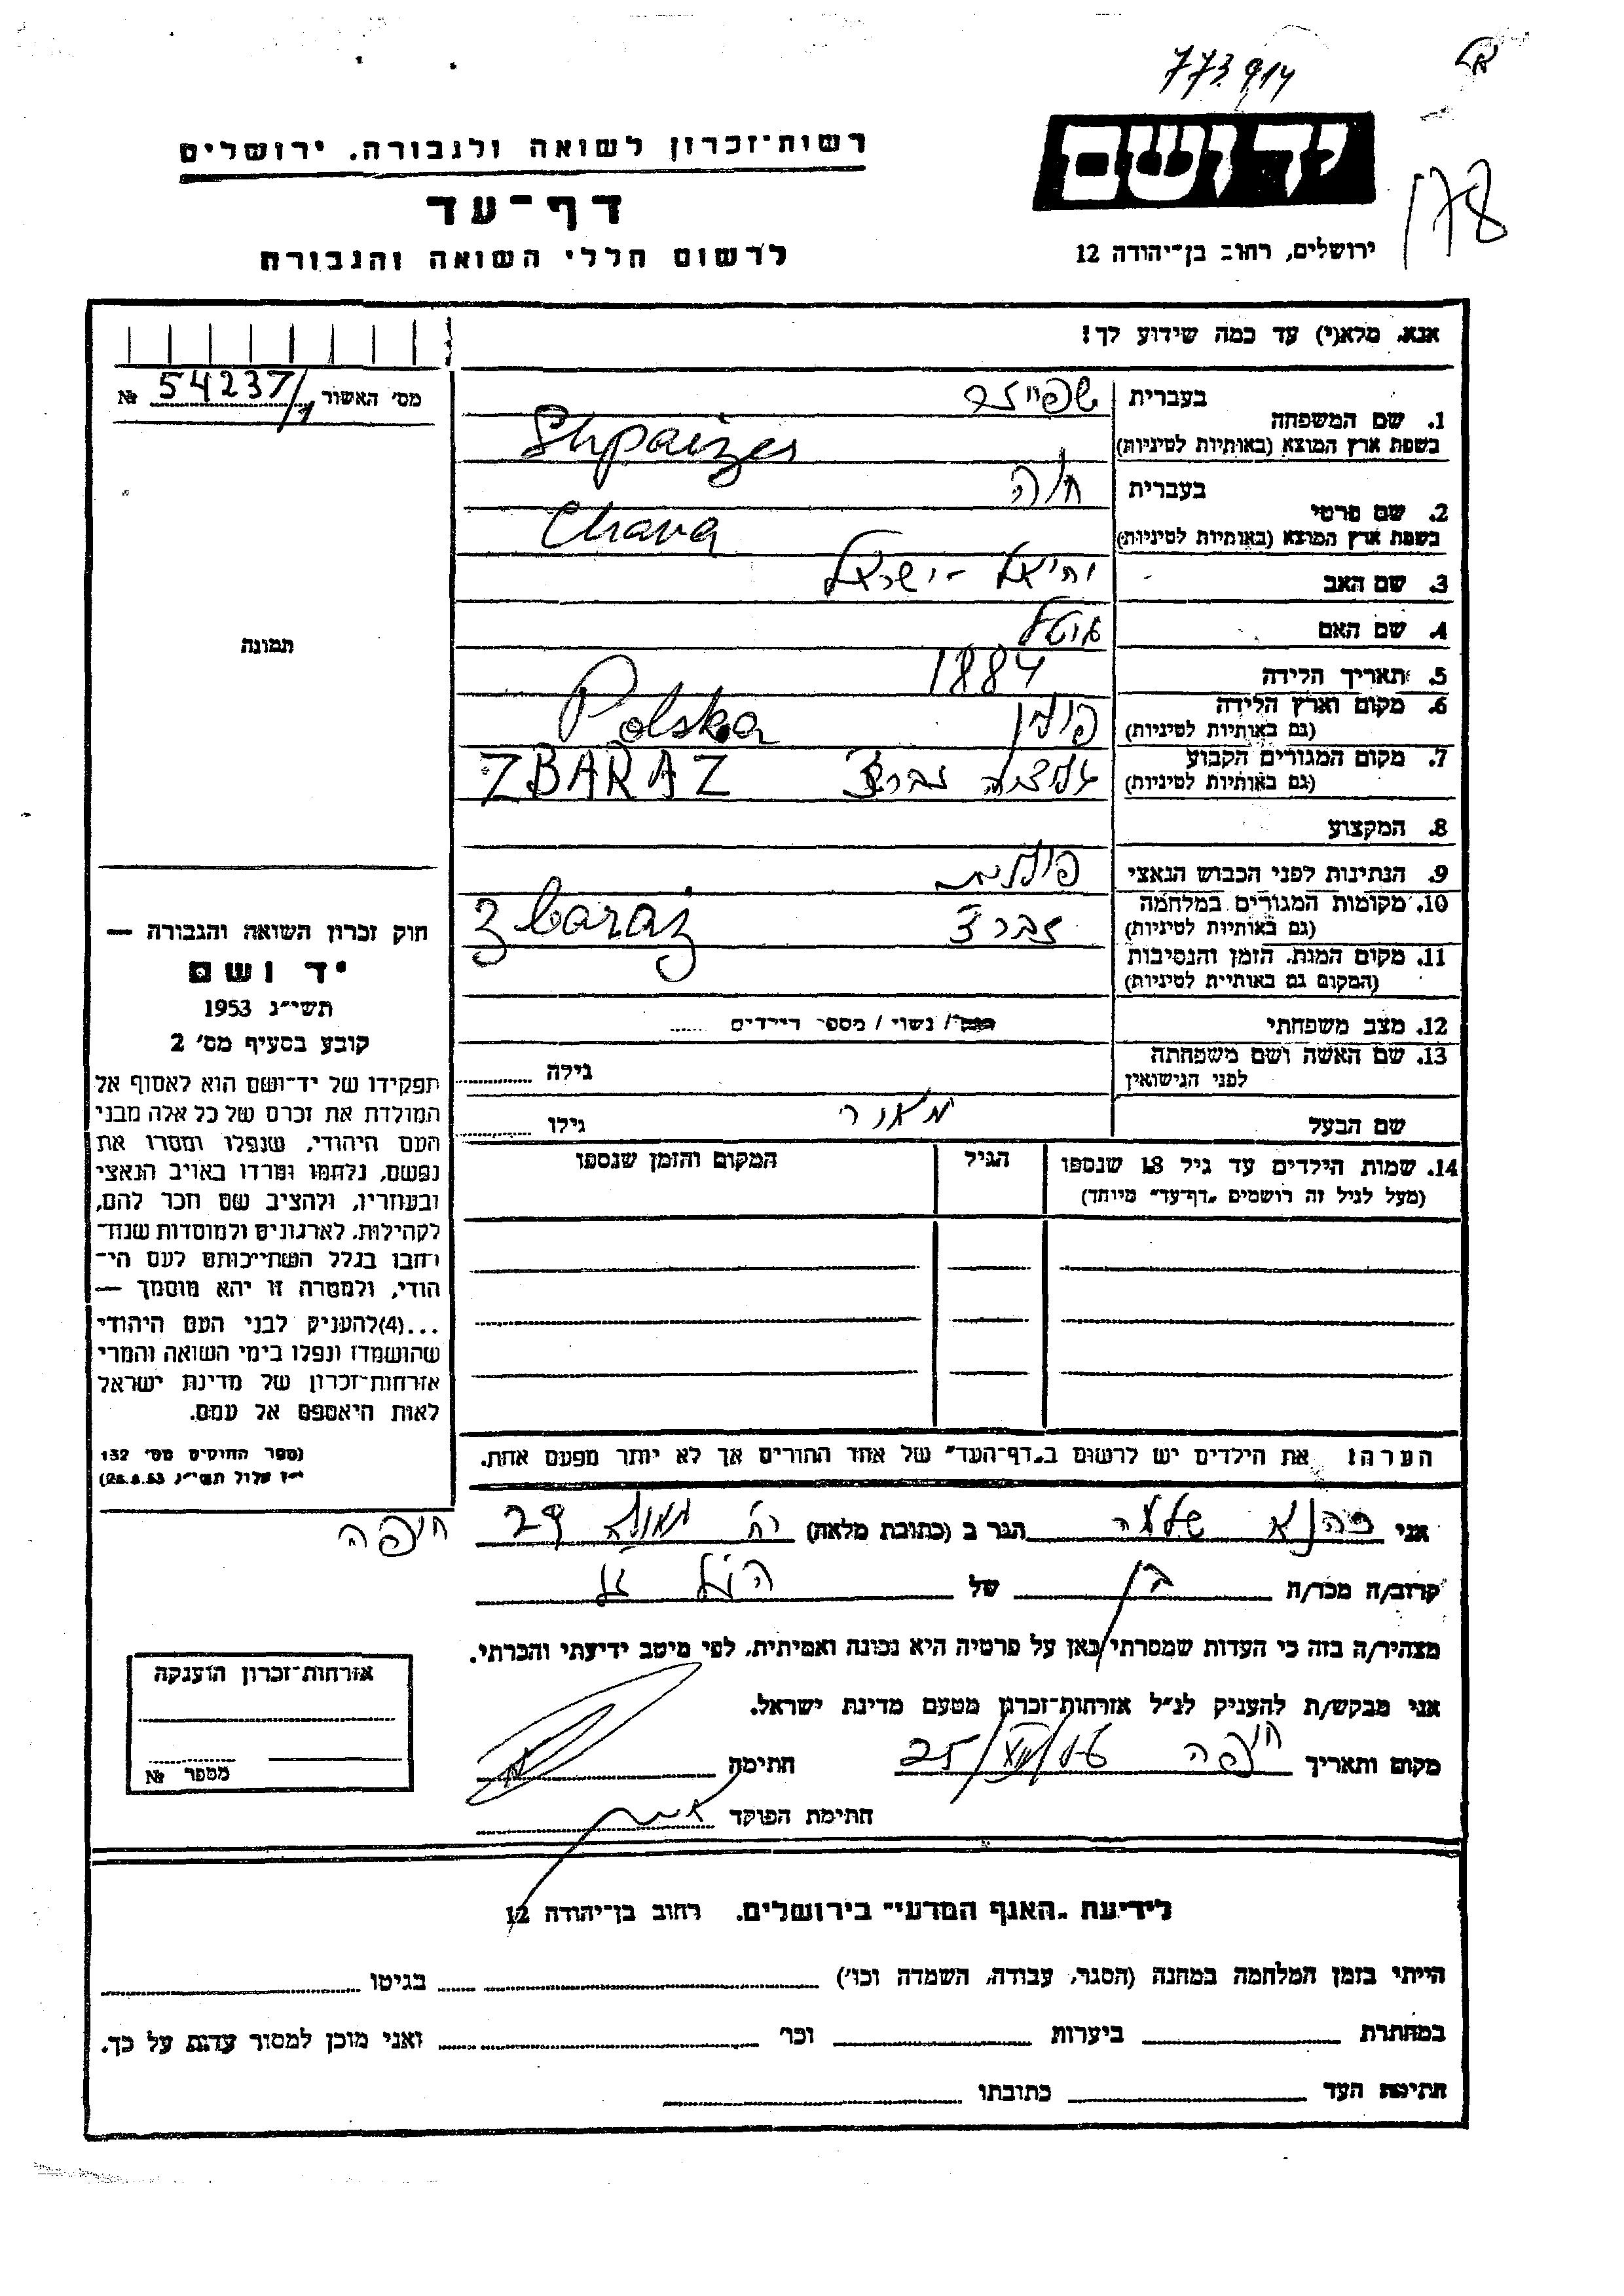 773914
178
יד ושם
ירושלים, רחוב בן־יהודה 12
רשות־זכרון לשואה ולגבורה. ירושלים
דף־עד
לרשום חללי השואה והגבורה
אנא, מלא(י) עד כמה שידוע לך!
מס' האשור № 54237/1
1. שם המשפחה בעברית
בשפת ארץ המוצא (באותיות לטיניות) Shpaizes
2. שם פרטי בעברית חוה
בשפת ארץ המוצא (באותיות לטיניות) Chava
3. שם האב יחיאל - ישראל
4. שם האם
5. תאריך הלידה 1884
6. מקום וארץ הלידה פולין Polska
(גם באותיות לטיניות)
7. מקום המגורים הקבוע זברז' ZBARAZ
(גם באותיות לטיניות)
8. המקצוע
9. הנתינות לפני הכבוש הנאצי פולנית
10. מקומות המגורים במלחמה זברז' Zbaraz
(גם באותיות לטיניות)
11. מקום המות. הזמן והנסיבות
(המקום גם באותיית לטיניות)
12. מצב משפחתי רווק/ נשוי / מספר הילדים ......
13. שם האשה ושם משפחתה גילה
לפני הנישואין
שם הבעל מאיר גילו
14. שמות הילדים עד גיל 18 שנספו הגיל המקום והזמן שנספו
(מעל לגיל זה רושמים "דף־עד" מיוחד)
הערה! את הילדים יש לרשום ב"דף־העד" של אחד ההורים אך לא יותר מפעם אחת.
תמונה
חוק זכרון השואה והגבורה —
יד ושם
תשי״ג 1953
קובע בסעיף מס' 2
תפקידו של יד־ושם הוא לאסוף אל
המולדת את זכרם של כל אלה מבני
העם היהודי, שנפלו ומסרו את
נפשם, נלחמו ומרדו באויב הנאצי
ובעוזריו, ולהציב שם וזכר להם,
לקהילות, לארגונים ולמוסדות שנח־
רחבו בגלל השתייכותם לעם הי־
הודי, ולמטרה זו יהא מוסמך —
...(4)להעניק לבני העם היהודי
שהושמדו ונפלו בימי השואה והמרי
אזרחות־זכרון של מדינת ישראל
לאות היאספם אל עמם.
(ספר החוקים מס' 132
י״ז אלול תשי״ג 28.8.53)
אני כהנא שלמה הגר ב (כתובת מלאה) רח' גאולה 29 חיפה
קרוב/ה מכר/ה בן של הנ"ל
מצהיר/ה בזה כי העדות שמסרתי כאן על פרטיה היא נכונה ואמיתית, לפי מיטב ידיעתי והכרתי.
אני מבקש/ת להעניק לנ"ל אזרחות־זכרון מטעם מדינת ישראל.
מקום ותאריך חיפה 25/ חתימה
חתימת הפוקד
אזרחות־זכרון הוענקה
מספר №
לידיעת "האגף המדעי" בירושלים. רחוב בן־יהודה 12
הייתי בזמן המלחמה במחנה (הסגר, עבודה, השמדה וכו') בגיטו
במחתרת ביערות וכו' ואני מוכן למסור עדות על כך.
חתימת העד כתובתו